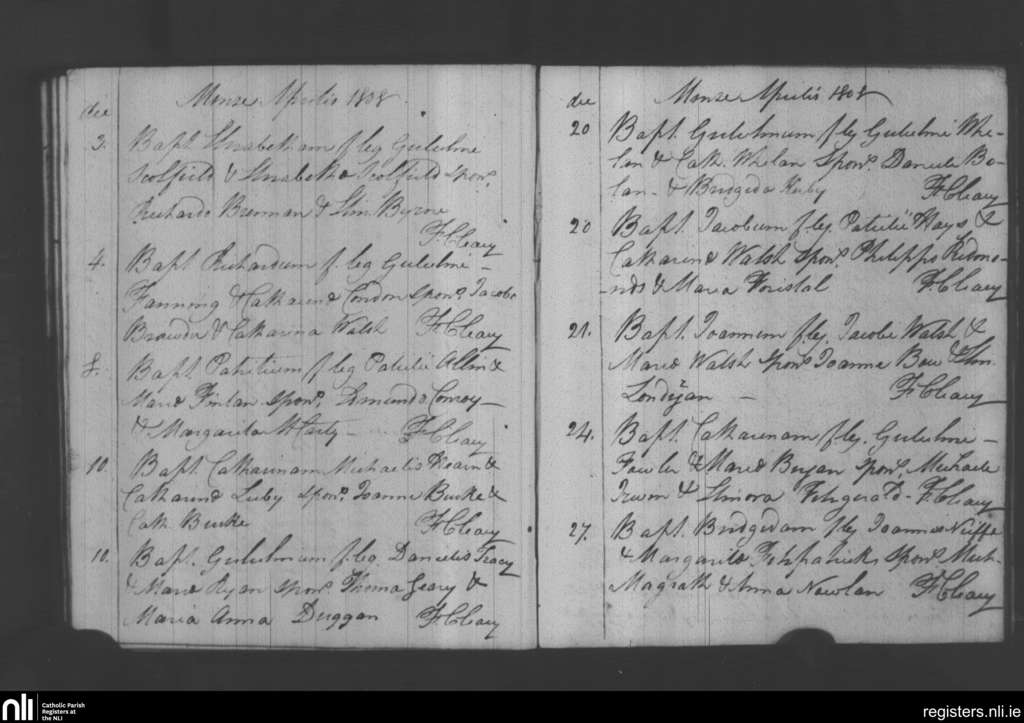 Mense Aprilis 1808
die
3. Bapt. Elisabetham f. leg Gulielmi
Scolfield & Elisabetha Scolfield Spons.
Richardo Brennan & Elen. Byrne
F. Cleary
4. Bapt. Richardum f. leg Gulielmi -
Fanning & Catharina Condon Spons. Jacobo
& Catharina Walsh F. Cleary
8. Bapt. Patritium f. leg Patritii Allen &
Maria Finlan Spons. Edmundo Conroy -
& Margarita McCarty - F. Cleary
10. Bapt. Catharinam Michaelis &
Catharina Luby Spons. Joanne Burke &
Cath. Burke F. Cleary
10. Bapt. Gulielmum f. leg. Danielis Tracy
& Maria Ryan Spons. Thoma Geary &
Maria Anna Duggan F. Cleary
Mense Aprilis 1808
die
20 Bapt. Gulielmum f. leg Gulielmi Whe-
lan & Cath. Whelan Spons. Daniele Bo-
lan - & Bridgida Kirby F. Cleary
20 Bapt. Jacobum f. leg. Patritii Hays &
Catharina Walsh Spons. Philippo Redmo-
-nds & Maria Foristal F. Cleary
21. Bapt. Joannem f. leg. Jacobi Walsh &
Maria Walsh Spons. Joanne & Elen.
F. Cleary
24. Bapt. Catharinam f. leg. Gulielmi -
Fowler & Maria Bryan Spons. Michaele
Irwin & Elinora Fitzgerald - F. Cleary
27. Bapt. Bridgidam f. leg Joannis
& Margarita Fitzpatricks Spons. Mich.
Magrath & Anna Nowlan F. Cleary
nli Catholic Parish
Registers at
the NLI
registers.nli.ie